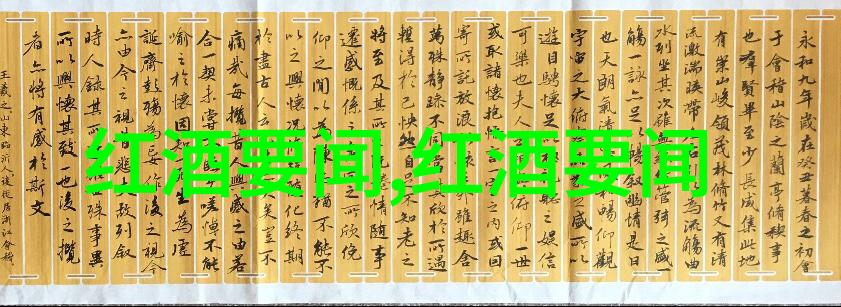 永和九年歲在癸丑暮春之初會
于會稽山陰之蘭亭脩稧事
也羣賢畢至少長咸集此地
有崇山峻領茂林脩竹又有清
流激湍暎帶左右引以為流觴曲
水列坐其次雖無管弦之盛一
觴一詠亦足以暢敘幽情是日
也天朗氣清暢仰觀
宇宙之大俯察之盛所以
遊目騁懷足以聽之娛信
可樂也夫人俯仰一世
或取諸懷抱之內或因
寄所託放浪外雖趣舍
萬殊靜躁不同當其欣於所遇
暫得於己快然自足不知老之
將至及其所惓情隨事
遷感慨係之之所欣俛
仰之間以為陳猶不能不
以之興懷況脩短隨化終期
於盡古人云矣豈不
痛哉每攬昔人興感之由若
合一契未嘗嗟悼不能
喻之於懷固知生為虛
誕齊彭殤為妄作後之視今
亦由今之視昔悲夫故列敘
時人錄其殊事異
所以興懷其致一也後之攬
者亦將有感於斯文
王羲之山東臨沂人後徙居浙江會稽
红酒要闻,红酒要闻